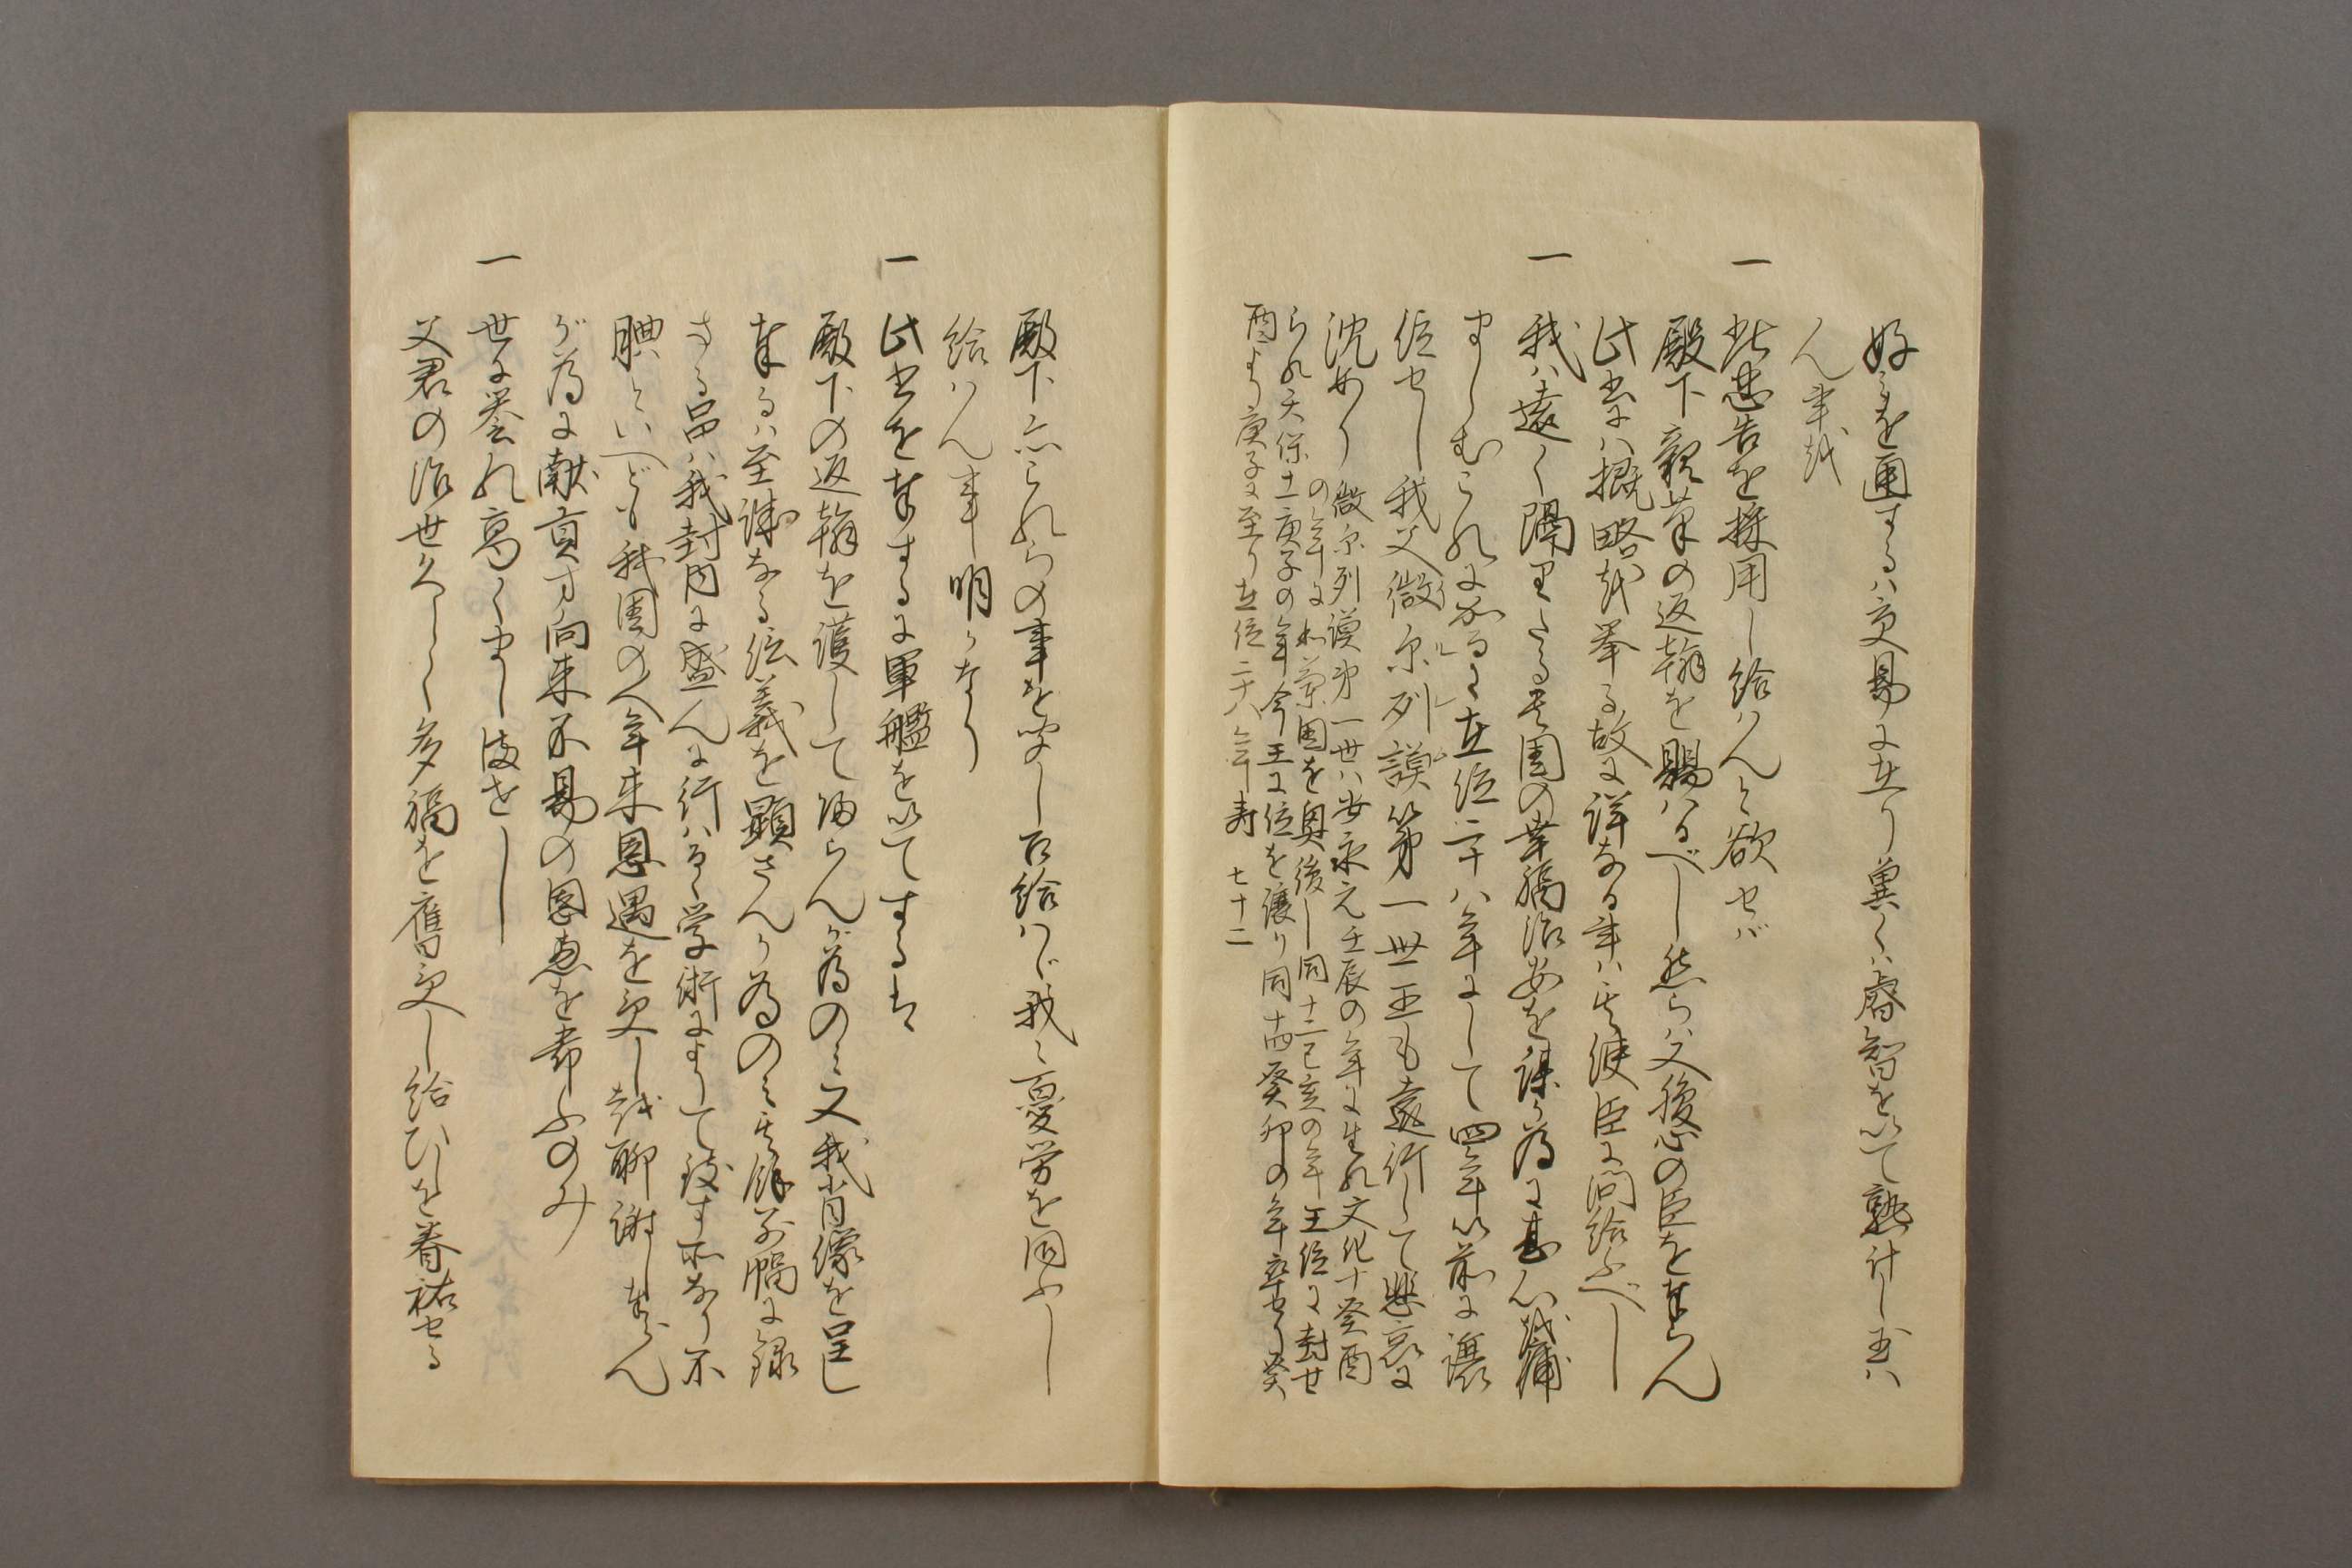 好ミを通するハ交易に在り冀くハ睿智を以て熟計し玉ハ
ん事越
一 此忠告を採用し給ハんと欲セバ
殿下親筆の返翰を賜ハるべし然らハ又腹心の臣を奉らん
此書にハ概略越挙る故に詳なる事ハ其使臣に問給ふべし
一 我ハ遠く隔里たる貴国の幸福治安を謀か為に甚心越痛
ましむこれに加るに在位二十八年にして四年以前に譲
位せし我父微尓列謨第一世王も遠行して悲哀に
沈めり微尓列謨第一世ハ安永元壬辰の年に生れ文化十癸酉
の年に和蘭国を興後し同十二己亥の年王位に封せ
られ天保十一庚子の年今王に位を譲り同十四癸卯の年卒せり癸
酉より庚子に至り在位二十八年寿七十二
殿下亦これらの事を聞し召給ハヾ我と憂労を同ふし
給ハん事明かなり
一 此書を奉するに軍艦を以てするハ
殿下の返翰を護して帰らんが為のミ又我肖像を呈し
奉るハ至誠なる信義を顕さんか為のミ其餘別幅に録
する品ハ我封内に盛んに行ハるゝ学術によりて致す所なり不
腆といへども我国の人年来恩遇を受し越聊謝し奉らん
が為に献貢す向来不易の恩恵を希ふのみ
一 世に誉れ高くまし満せし
父君の治世久しく多福を膺受し給ひしを眷祐せる